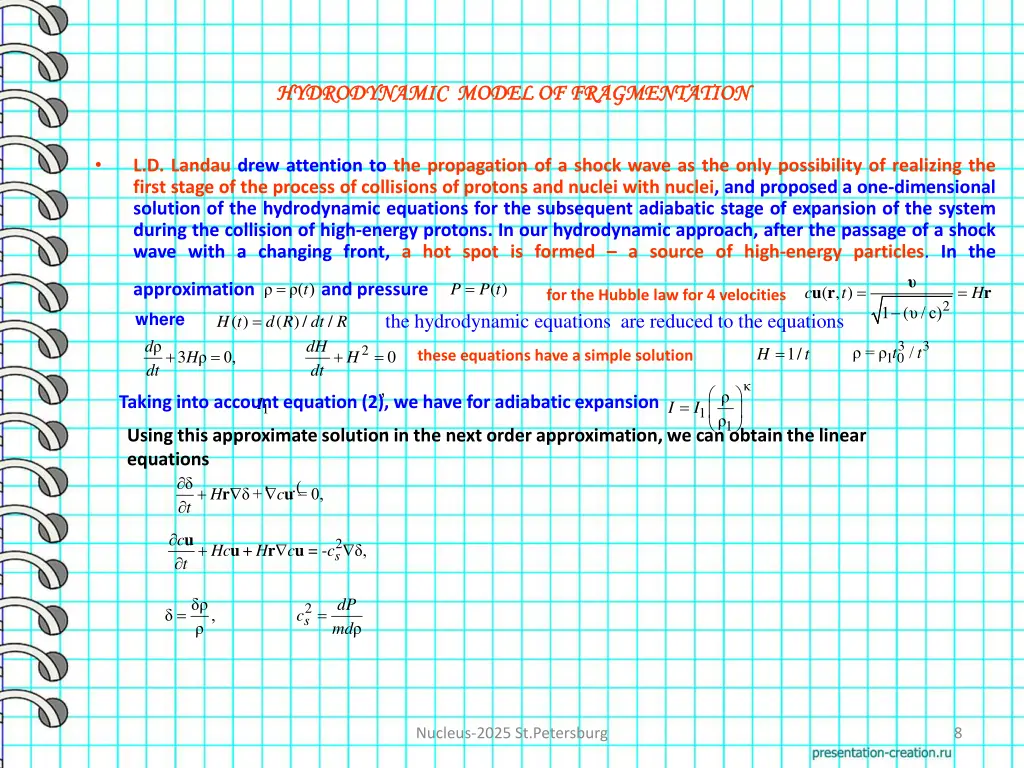 HYDRODYNAMIC MODEL OF FRAGMENTATION
• L.D. Landau drew attention to the propagation of a shock wave as the only possibility of realizing the
first stage of the process of collisions of protons and nuclei with nuclei, and proposed a one-dimensional
solution of the hydrodynamic equations for the subsequent adiabatic stage of expansion of the system
during the collision of high-energy protons. In our hydrodynamic approach, after the passage of a shock
wave with a changing front, a hot spot is formed – a source of high-energy particles. In the
approximation ρ = ρ(t) and pressure P = P(t) for the Hubble law for 4 velocities cu(r, t) = υ / √(1 − (υ / c)²) = Hr
where H(t) = d(R) / dt / R the hydrodynamic equations are reduced to the equations
dρ/dt + 3Hρ = 0, dH/dt + H² = 0 these equations have a simple solution H = 1/ t ρ = ρ₁t₀³ / t³
Taking into account equation (2), we have for adiabatic expansion I = I₁(ρ/ρ₁)^κ
Using this approximate solution in the next order approximation, we can obtain the linear
equations
∂δ/∂t + Hr∇δ + ∇cu = 0,
∂cu/∂t + Hcu + Hr∇cu = -cₛ²∇δ,
δ = δρ/ρ, cₛ² = dP/mdρ
Nucleus-2025 St.Petersburg
8
presentation-creation.ru